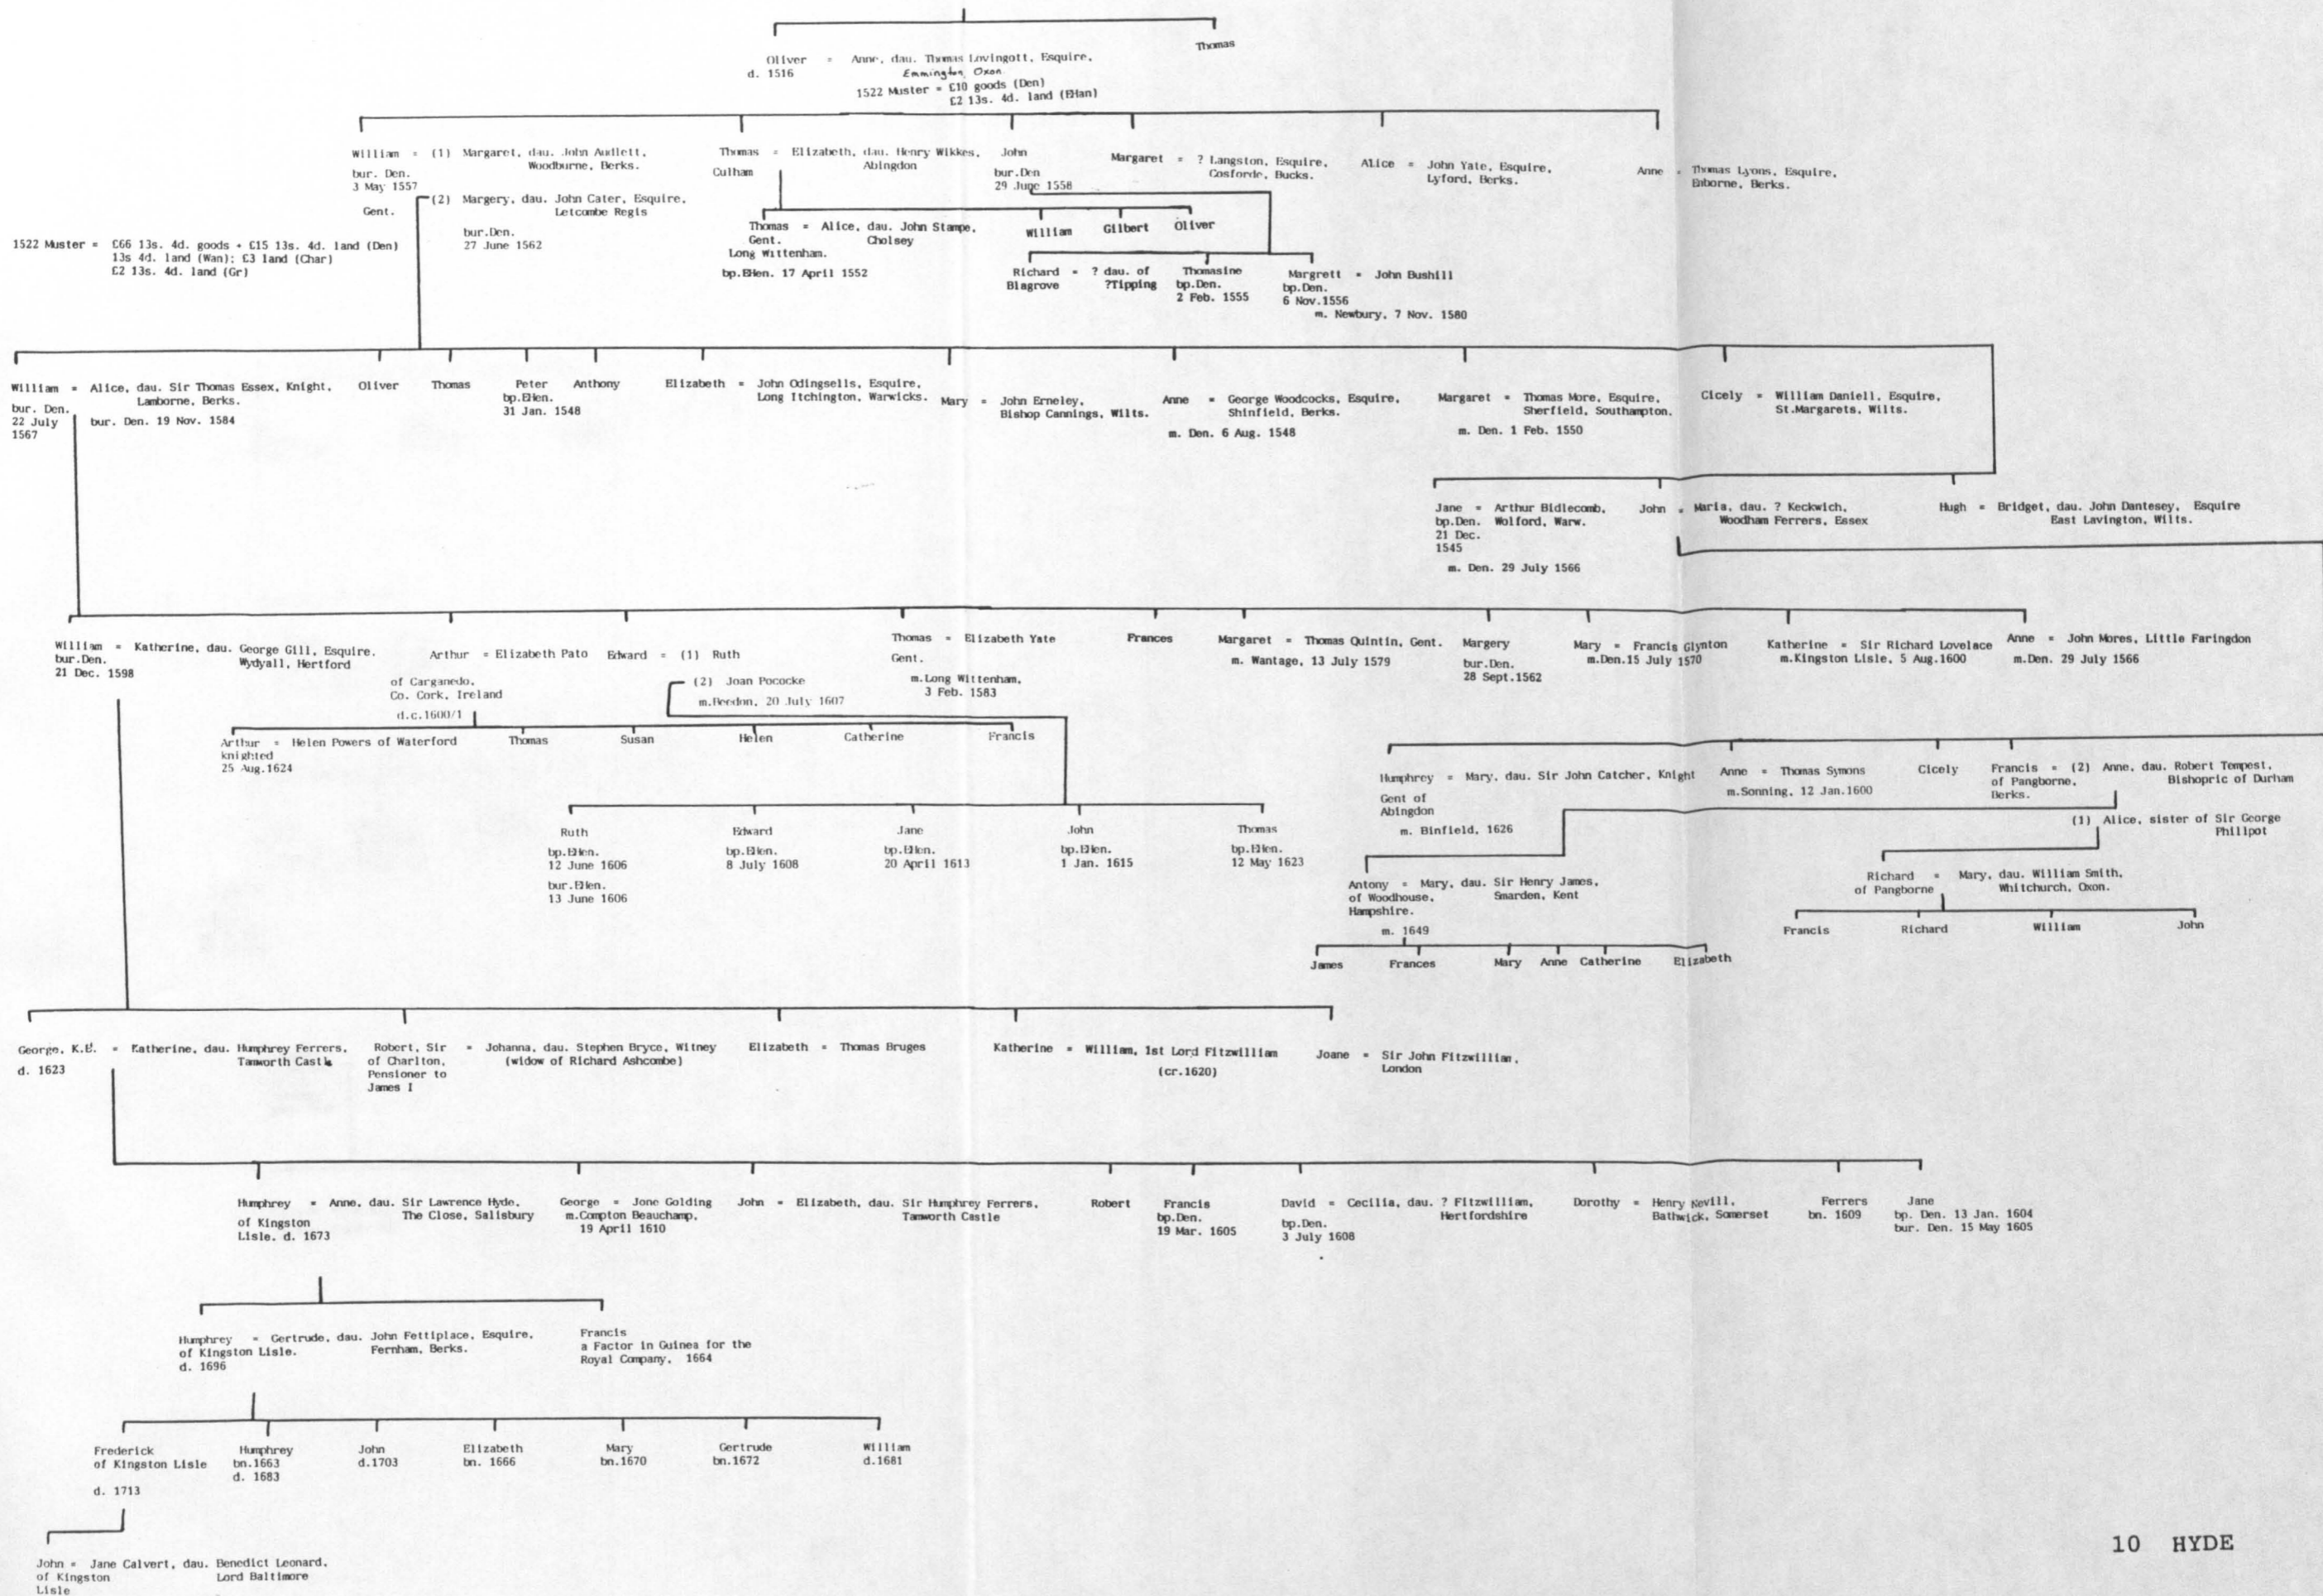 Thomas
Oliver = Anne, dau. Thomas Lovingott, Esquire,
d. 1516 Emmington, Oxon.
1522 Muster = £10 goods (Den)
£2 13s. 4d. land (EHan)
William = (1) Margaret, dau. John Audlett,
Woodburne, Berks.
bur. Den.
3 May 1557
(2) Margery, dau. John Cater, Esquire,
Letcombe Regis
Gent.
bur.Den.
27 June 1562
1522 Muster = £66 13s. 4d. goods + £15 13s. 4d. land (Den)
13s 4d. land (Wan); £3 land (Char)
£2 13s. 4d. land (Gr)
Thomas = Elizabeth, dau. Henry Wikkes,
Culham Abingdon
John
bur.Den
29 June 1558
Margaret = ? Langston, Esquire,
Gosforde, Bucks.
Alice = John Yate, Esquire,
Lyford, Berks.
Anne = Thomas Lyons, Esquire,
Enborne, Berks.
Thomas = Alice, dau. John Stampe,
Gent. Cholsey
Long Wittenham.
bp.EHen. 17 April 1552
William Gilbert Oliver
Richard = ? dau. of
Blagrove ?Tipping
Thomasine
bp.Den.
2 Feb. 1555
Margrett = John Bushill
bp.Den.
6 Nov.1556
m. Newbury, 7 Nov. 1580
William = Alice, dau. Sir Thomas Essex, Knight,
Lamborne, Berks.
bur. Den.
22 July bur. Den. 19 Nov. 1584
1567
Oliver Thomas
Peter
bp.EHen.
31 Jan. 1548
Anthony
Elizabeth = John Odingsells, Esquire,
Long Itchington, Warwicks.
Mary = John Erneley,
Bishop Cannings, Wilts.
Anne = George Woodcocks, Esquire,
Shinfield, Berks.
m. Den. 6 Aug. 1548
Margaret = Thomas More, Esquire,
Sherfield, Southampton.
m. Den. 1 Feb. 1550
Cicely = William Daniell, Esquire,
St.Margarets, Wilts.
Jane = Arthur Bidlecomb,
bp.Den. Wolford, Warw.
21 Dec.
1545
m. Den. 29 July 1566
John = Maria, dau. ? Keckwich,
Woodham Ferrers, Essex
Hugh = Bridget, dau. John Dantesey, Esquire
East Lavington, Wilts.
William = Katherine, dau. George Gill, Esquire.
bur.Den. Wydyall, Hertford
21 Dec. 1598
Arthur = Elizabeth Pato
of Carganedo,
Co. Cork, Ireland
d.c.1600/1
Edward = (1) Ruth
(2) Joan Pococke
m.Beedon, 20 July 1607
Thomas = Elizabeth Yate
Gent.
m.Long Wittenham,
3 Feb. 1583
Frances
Margaret = Thomas Quintin, Gent.
m. Wantage, 13 July 1579
Margery
bur.Den.
28 Sept.1562
Mary = Francis Glynton
m.Den.15 July 1570
Katherine = Sir Richard Lovelace
m.Kingston Lisle, 5 Aug.1600
Anne = John Mores, Little Faringdon
m.Den. 29 July 1566
Arthur = Helen Powers of Waterford
knighted
25 Aug.1624
Thomas Susan Helen Catherine Francis
Humphrey = Mary, dau. Sir John Catcher, Knight
Gent of
Abingdon
m. Binfield, 1626
Anne = Thomas Symons
m.Sonning, 12 Jan.1600
Cicely
Francis = (2) Anne, dau. Robert Tempest,
of Pangborne, Bishopric of Durham
Berks.
(1) Alice, sister of Sir George
Phillpot
Ruth
bp.EHen.
12 June 1606
bur.EHen.
13 June 1606
Edward
bp.EHen.
8 July 1608
Jane
bp.EHen.
20 April 1613
John
bp.EHen.
1 Jan. 1615
Thomas
bp.EHen.
12 May 1623
Antony = Mary, dau. Sir Henry James,
of Woodhouse, Smarden, Kent
Hampshire.
m. 1649
Richard = Mary, dau. William Smith,
of Pangborne Whitchurch, Oxon.
Francis Richard William John
James Frances Mary Anne Catherine Elizabeth
George, K.B. = Katherine, dau. Humphrey Ferrers,
d. 1623 Tamworth Castle
Robert, Sir = Johanna, dau. Stephen Bryce, Witney
of Charlton, (widow of Richard Ashcombe)
Pensioner to
James I
Elizabeth = Thomas Bruges
Katherine = William, 1st Lord Fitzwilliam
(cr.1620)
Joane = Sir John Fitzwillian,
London
Humphrey = Anne, dau. Sir Lawrence Hyde,
of Kingston The Close, Salisbury
Lisle. d. 1673
George = Jone Golding
m.Compton Beauchamp,
19 April 1610
John = Elizabeth, dau. Sir Humphrey Ferrers,
Tamworth Castle
Robert
Francis
bp.Den.
19 Mar. 1605
David = Cecilia, dau. ? Fitzwilliam,
bp.Den. Hertfordshire
3 July 1608
Dorothy = Henry Nevill,
Bathwick, Somerset
Ferrers
bn. 1609
Jane
bp. Den. 13 Jan. 1604
bur. Den. 15 May 1605
Humphrey = Gertrude, dau. John Fettiplace, Esquire,
of Kingston Lisle. Fernham, Berks.
d. 1696
Francis
a Factor in Guinea for the
Royal Company, 1664
Frederick
of Kingston Lisle
d. 1713
Humphrey
bn.1663
d. 1683
John
d.1703
Elizabeth
bn. 1666
Mary
bn.1670
Gertrude
bn.1672
William
d.1681
John = Jane Calvert, dau. Benedict Leonard,
of Kingston Lord Baltimore
Lisle
10 HYDE